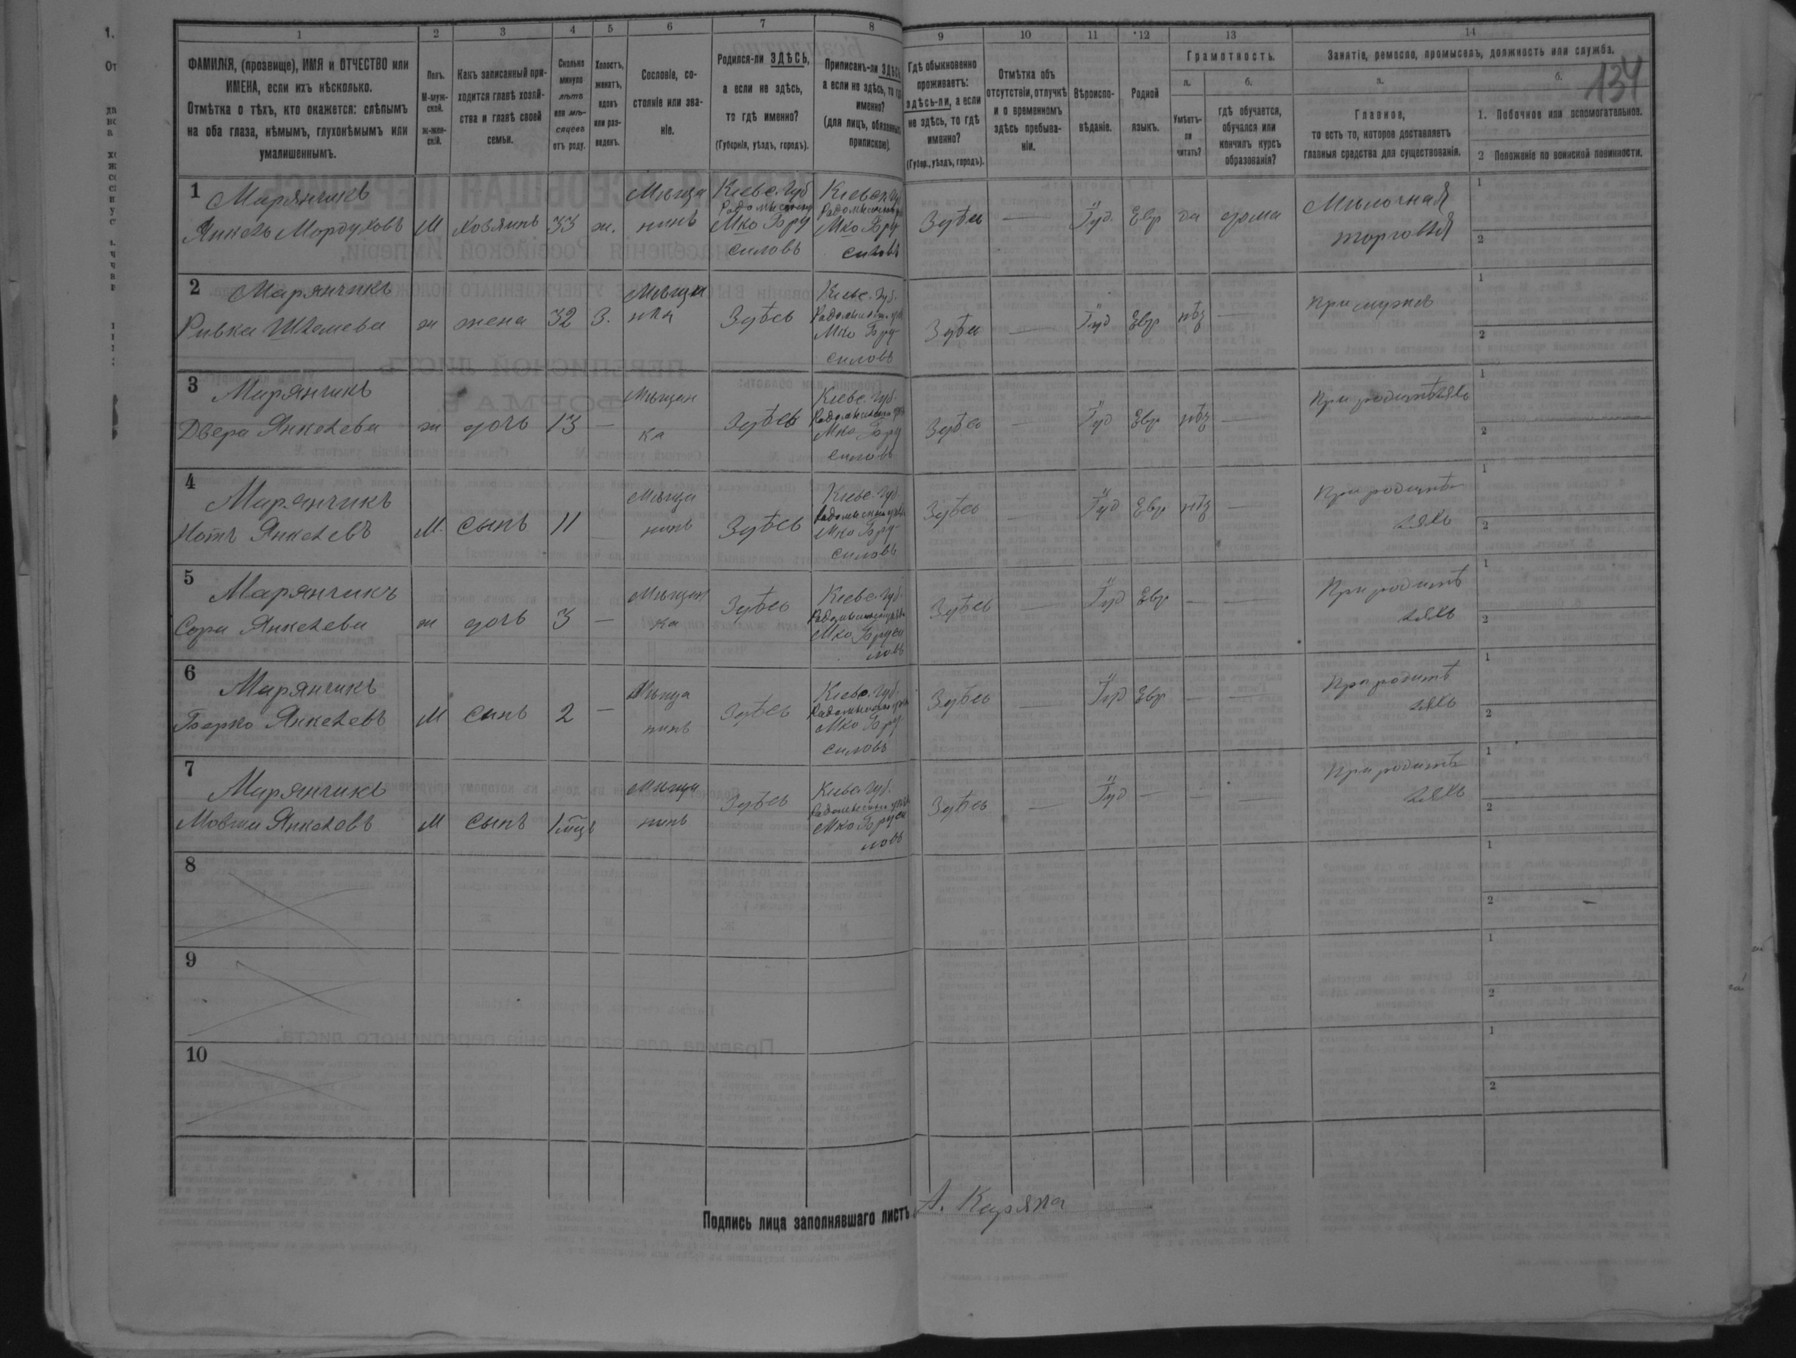 134
1 2 3 4 5 6 7 8 9 10 11 12 13 14
ФАМИЛІЯ, (прозвище), ИМЯ и ОТЧЕСТВО или
ИМЕНА, если ихъ нѣсколько.
Отмѣтка о тѣхъ, кто окажется: слѣпымъ
на оба глаза, нѣмымъ, глухонѣмымъ или
умалишеннымъ.
Полъ.
М-муж-
ской.
ж-жен-
скій.
Какъ записанный при-
ходится главѣ хозяй-
ства и главѣ своей
семьи.
Сколько
минуло
лѣтъ
или мѣ-
сяцевъ
отъ роду.
Холостъ,
женатъ,
вдовъ
или раз-
веденъ.
Сословіе, со-
стояніе или зва-
ніе.
Родился-ли ЗДѢСЬ,
а если не здѣсь,
то гдѣ именно?
(Губернія, уѣздъ, городъ).
Приписанъ-ли ЗДѢСЬ,
а если не здѣсь, то гдѣ
именно?
(для лицъ, обязанныхъ
припискою).
Гдѣ обыкновенно
проживаетъ:
здѣсь-ли, а если
не здѣсь, то гдѣ
именно?
(Губерн., уѣздъ, городъ).
Отмѣтка объ
отсутствіи, отлучкѣ
и о временномъ
здѣсь пребыва-
ніи.
Вѣроиспо-
вѣданіе.
Родной
языкъ.
Грамотность.
а. б.
Умѣетъ-
ли
читать?
гдѣ обучается,
обучался или
кончилъ курсъ
образованія?
Занятіе, ремесло, промыселъ, должность или служба.
а. б.
Главное,
то есть то, которое доставляетъ
главныя средства для существованія.
1. Побочное или вспомогательное.
2 Положеніе по воинской повинности.
1 Марянчикъ
Янкель Мордуховъ М хозяинъ 33 ж. Мѣщанинъ Кіевс. Губ Радомысльск М-ко Брусиловъ Кіевск. Губ Радомысльск М-ко Брусиловъ Здѣсь — Іуд. Евр да дома Мелочная торговля
2 Марянчикъ
Ривка ж жена 32 З. Мѣщанка Здѣсь Кіевс. Губ. М-ко Брусиловъ Здѣсь — Іуд Евр нѣт — При мужѣ
3 Марянчикъ
Двера Янкелева ж дочь 13 — Мѣщанка Здѣсь Кіевс. Губ. М-ко Брусиловъ Здѣсь — Іуд Евр нѣт — При родителяхъ
4 Марянчикъ
Янкелевъ М. сынъ 11 — Мѣщанинъ Здѣсь Кіевс. Губ М-ко Брусиловъ Здѣсь — Іуд Евр нѣт — При родителяхъ
5 Марянчикъ
Сура Янкелева ж дочь 3 — Мѣщанка Здѣсь Кіевс. Губ. М-ко Брусиловъ Здѣсь — Іуд Евр — — При родителяхъ
6 Марянчикъ
Берко Янкелевъ М сынъ 2 — Мѣщанинъ Здѣсь Кіевс. Губ. М-ко Брусиловъ Здѣсь — Іуд Евр — — При родителяхъ
7 Марянчикъ
Мовша Янкелевъ М сынъ 1 мѣц Мѣщанинъ Здѣсь Кіевс. Губ. М-ко Брусиловъ Здѣсь — Іуд — — При родителяхъ
8
9
10
Подпись лица заполнявшаго листъ